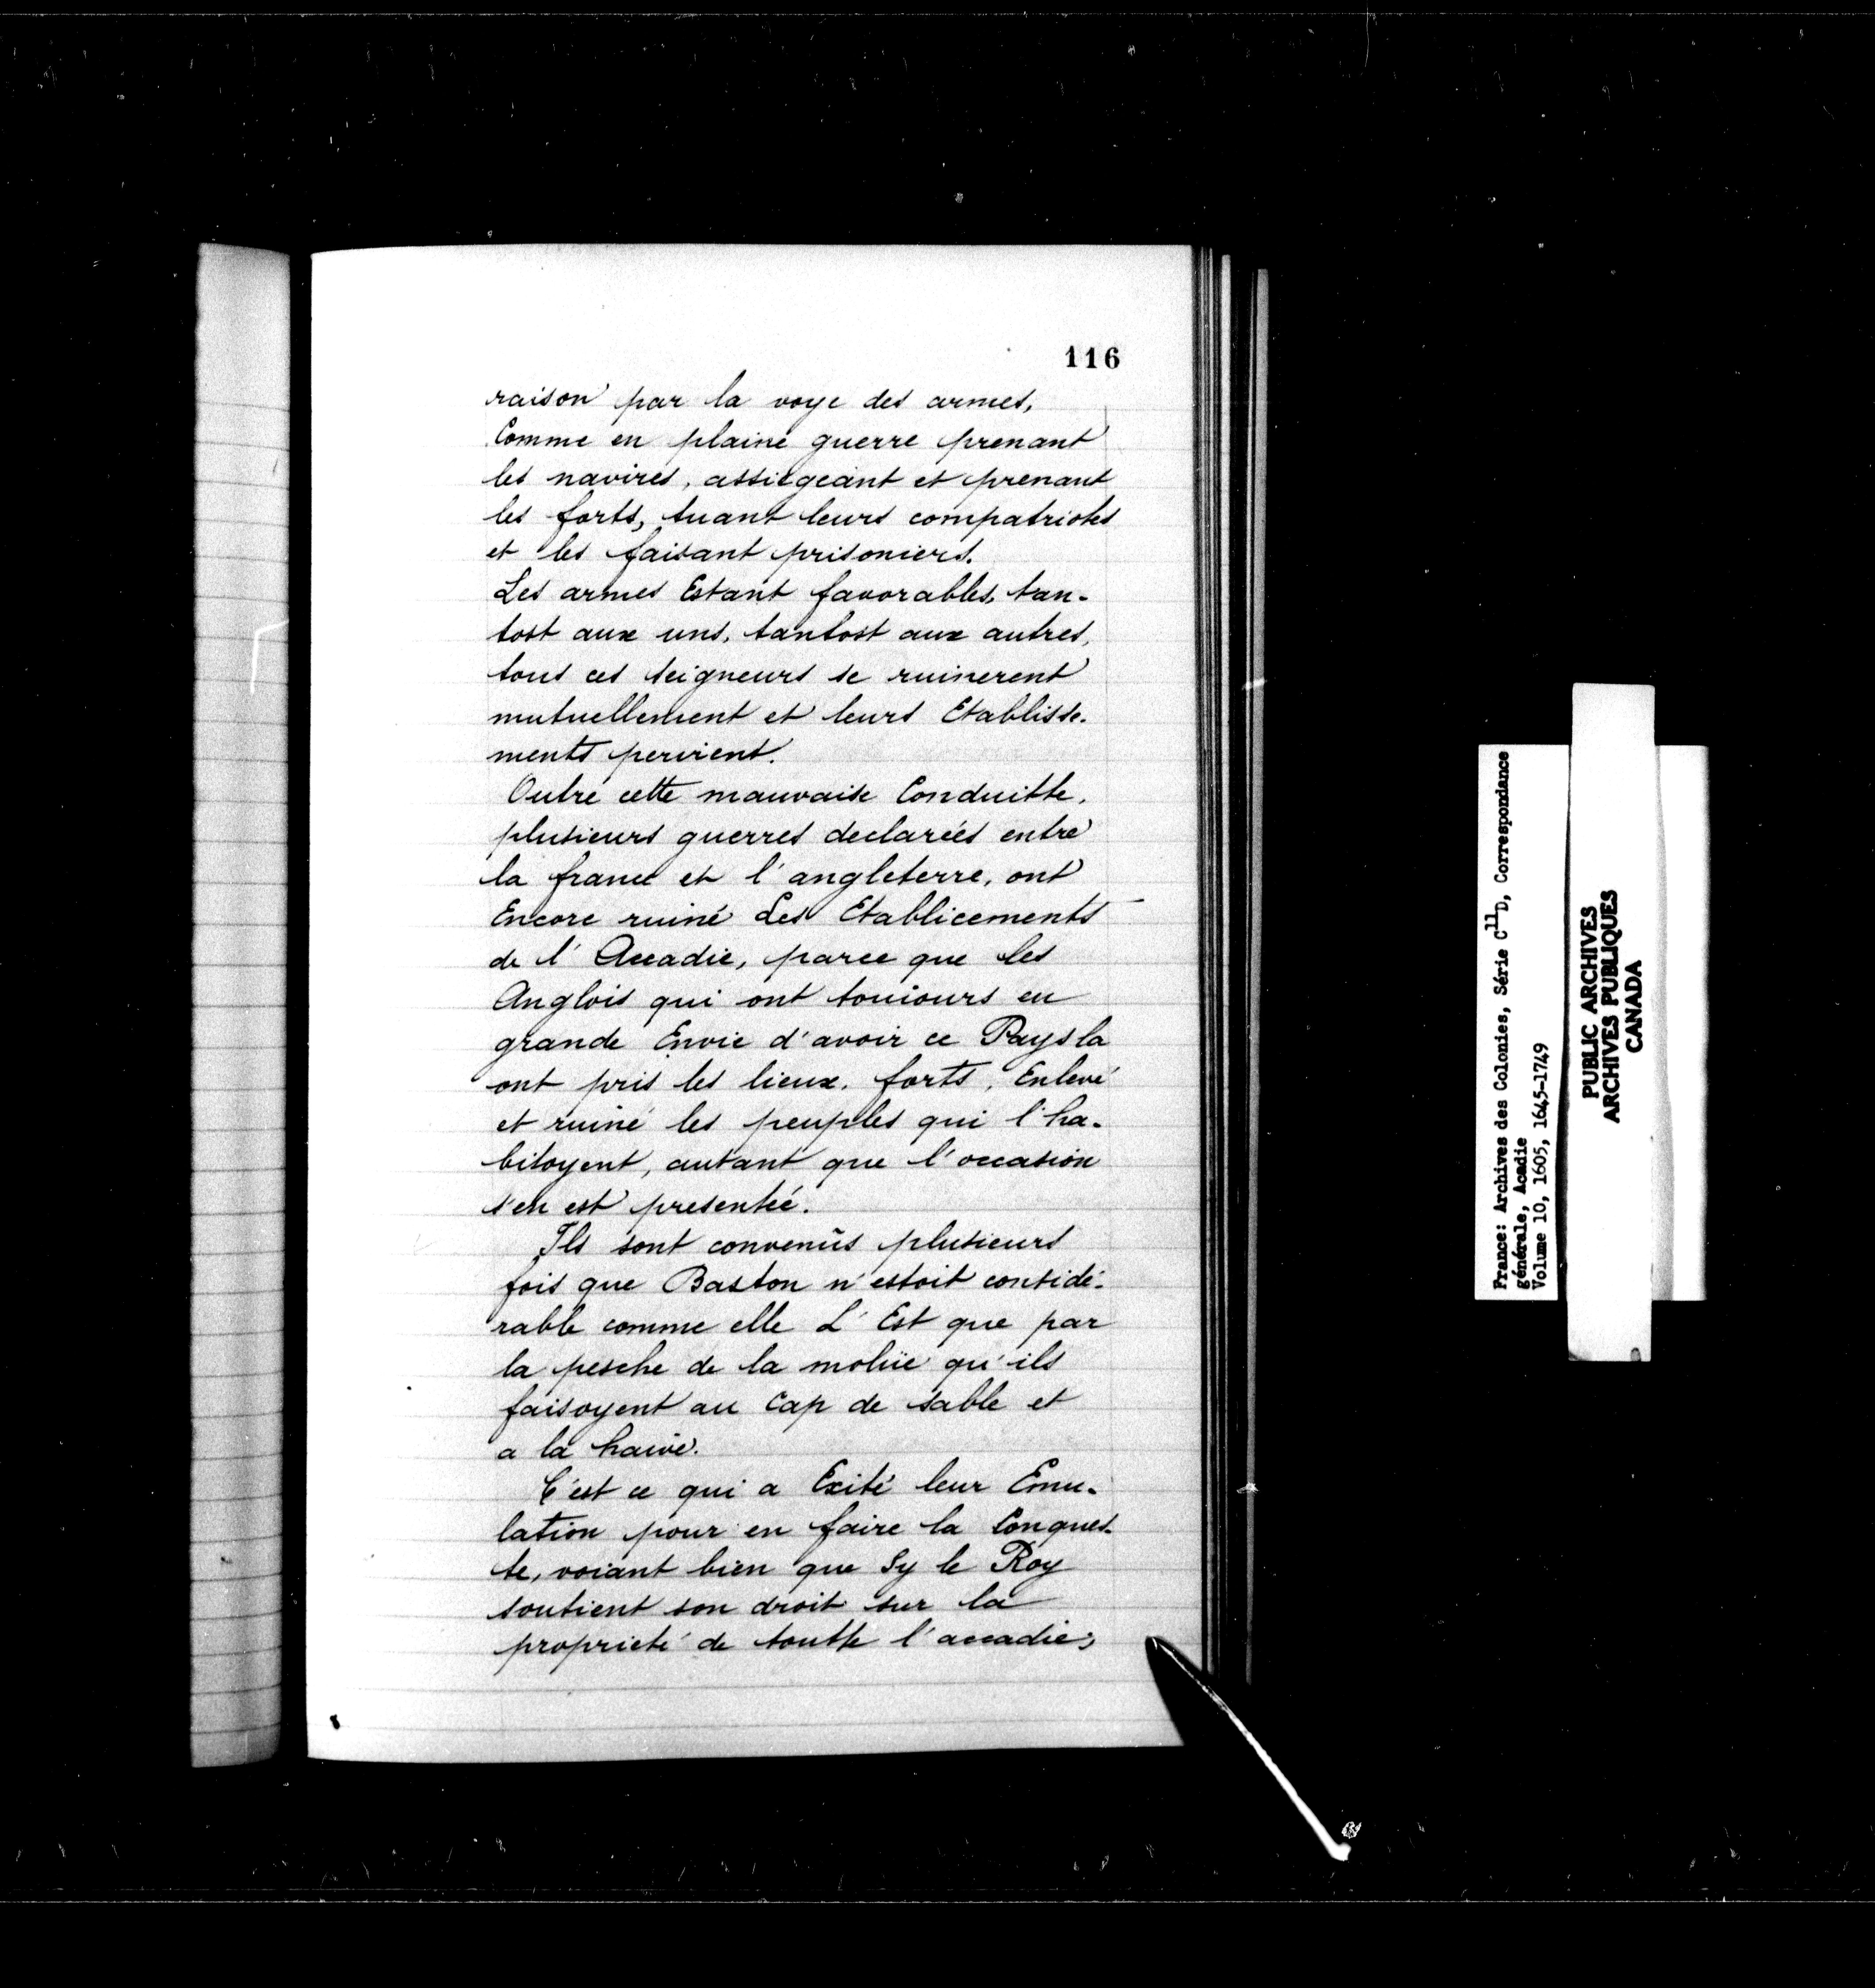 116
raison par la voye des armes,
Comme en plaine guerre prenant
les navires, assiegeant et prenant
les forts, tuant leurs compatriotes
et les faisant prisoniers.
Les armes Estant favorables, tan-
tost aux uns, tantost aux autres,
tous ces seigneurs se ruinerent
mutuellement et leurs Etablisse-
ments perirent.
Outre cette mauvaise Conduitte,
plusieurs guerres declareés entre
la france et l'angleterre, ont
Encore ruiné Les Etablicements
de l'Accadie, parce que les
Anglois qui ont touiours eu
grande Envie d'avoir ce Pays la
ont pris les lieux, forts, Enlevé
et ruiné les peuples qui l'ha-
bitoyent, autant que l'occasion
s'en est presenteé.
Ils sont convenûs plusieurs
fois que Baston n'estoit considé-
rable comme elle L'Est que par
la pesche de la moliie qu'ils
faisoyent au Cap de sable et
a la haive.
C'est ce qui a Exité leur Emu-
lation pour en faire la Conques-
te, voiant bien que Sy le Roy
soutient son droit sur la
proprieté de toutte l'accadie;
France: Archives des Colonies, Série C11D, Correspondance
générale, Acadie
Volume 10, 1605, 1645-1749
PUBLIC ARCHIVES
ARCHIVES PUBLIQUES
CANADA